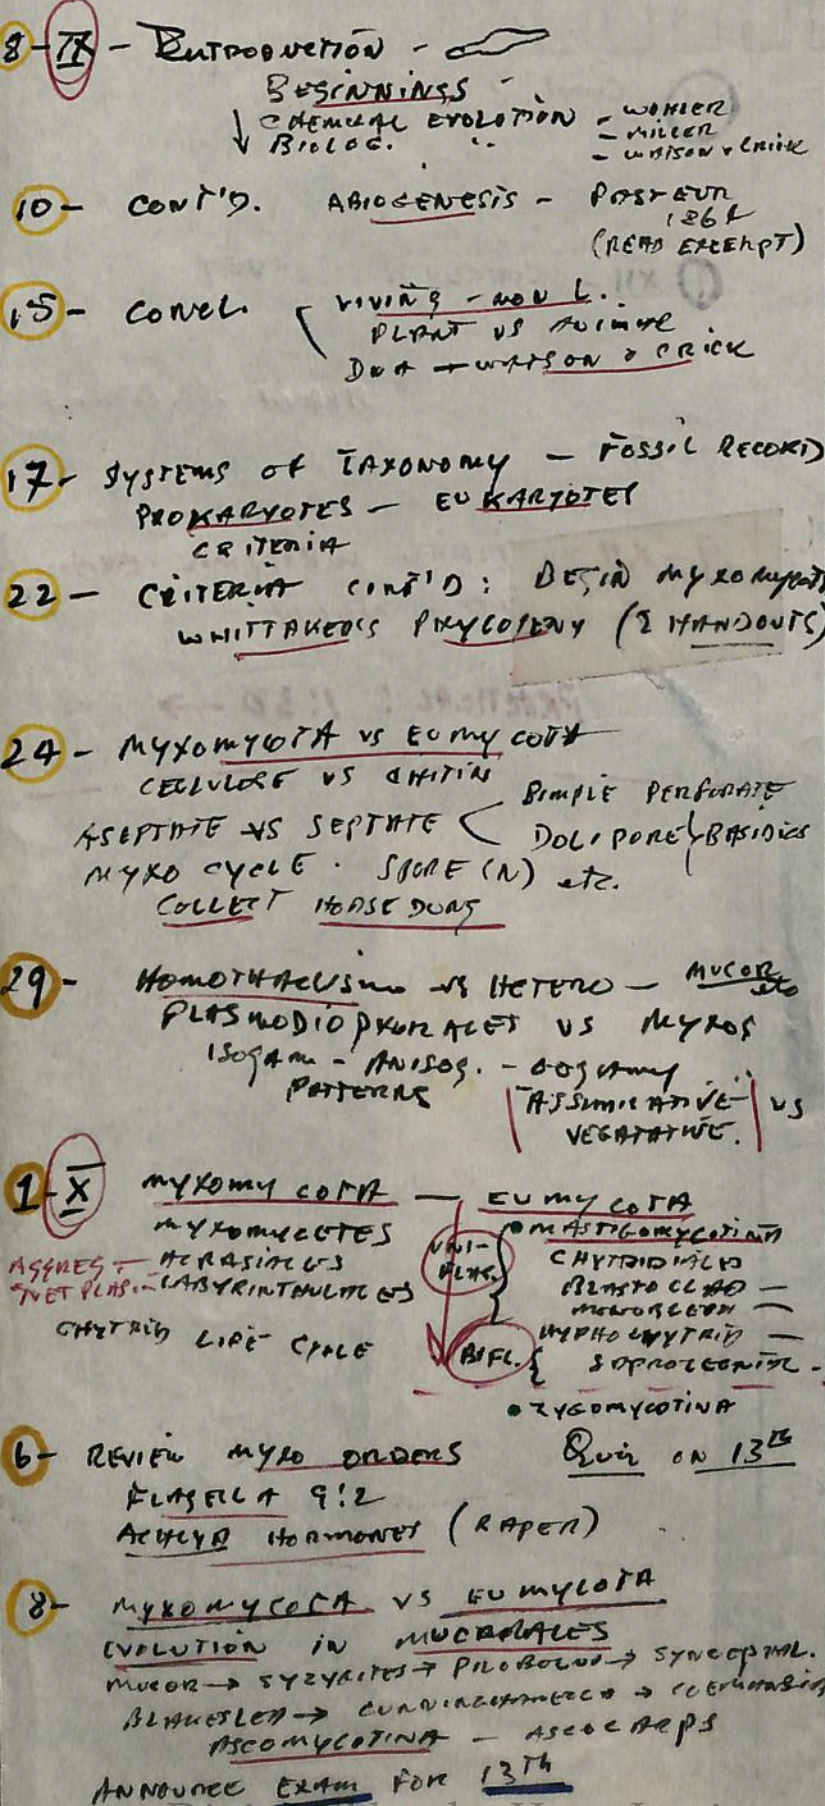 8-IX - INTRODUCTION -
BEGINNINGS -
↓ CHEMICAL EVOLUTION - WOHLER
- MILLER
BIOLOG. " - WATSON & CRICK
10- CONT'D. ABIOGENESIS - PASTEUR
1864
(READ EXCERPT)
15- CONCL. LIVING - NON L.
PLANT VS ANIMAL
DNA → WATSON & CRICK
17- SYSTEMS OF TAXONOMY - FOSSIL RECORD
PROKARYOTES - EUKARYOTES
CRITERIA
22- CRITERIA CONT'D: BEGIN MYXOMYCOTA
WHITTAKER'S PHYLOGENY (2 HANDOUTS)
24- MYXOMYCOTA VS EUMYCOTA
CELLULOSE VS CHITIN
ASEPTATE VS SEPTATE < SIMPLE PERFORATE
DOLIPORE} BASIDIOS
MYXO CYCLE. SPORE (N) etc.
COLLECT HORSE DUNG
29- HOMOTHALLISM VS HETERO - MUCOR etc
PLASMODIOPHORALES VS MYXOS
ISOGAM - ANISOG. - OOGAMY
PATTERNS
|ASSIMILATIVE| VS
VEGATATIVE.
1-X MYXOMYCOTA - EUMYCOTA
MYXOMYCETES • MASTIGOMYCOTINA
AGGREG - ACRASIALES UNI-FLAG. { CHYTRIDIALES
NET PLAS - LABYRINTHULALES BLASTOCLAD -
MONOBLEPH -
CHYTRID LIFE CYCLE HYPHOCHYTRID -
BIFL. { SAPROLEGNIA -
• ZYGOMYCOTINA
6- REVIEW MYXO ORDERS Quiz ON 13th
FLAGELLA 9:2
ACHLYA HORMONES (RAPER)
8- MYXOMYCOTA VS EUMYCOTA
EVOLUTION IN MUCORALES
MUCOR → SYZYGITES → PILOBOLUS → SYNCEPHAL.
BLAKESLEA → CUNNINGHAMELLA → COEMANSIA
ASCOMYCOTINA - ASCOCARPS
ANNOUNCE EXAM FOR 13Th